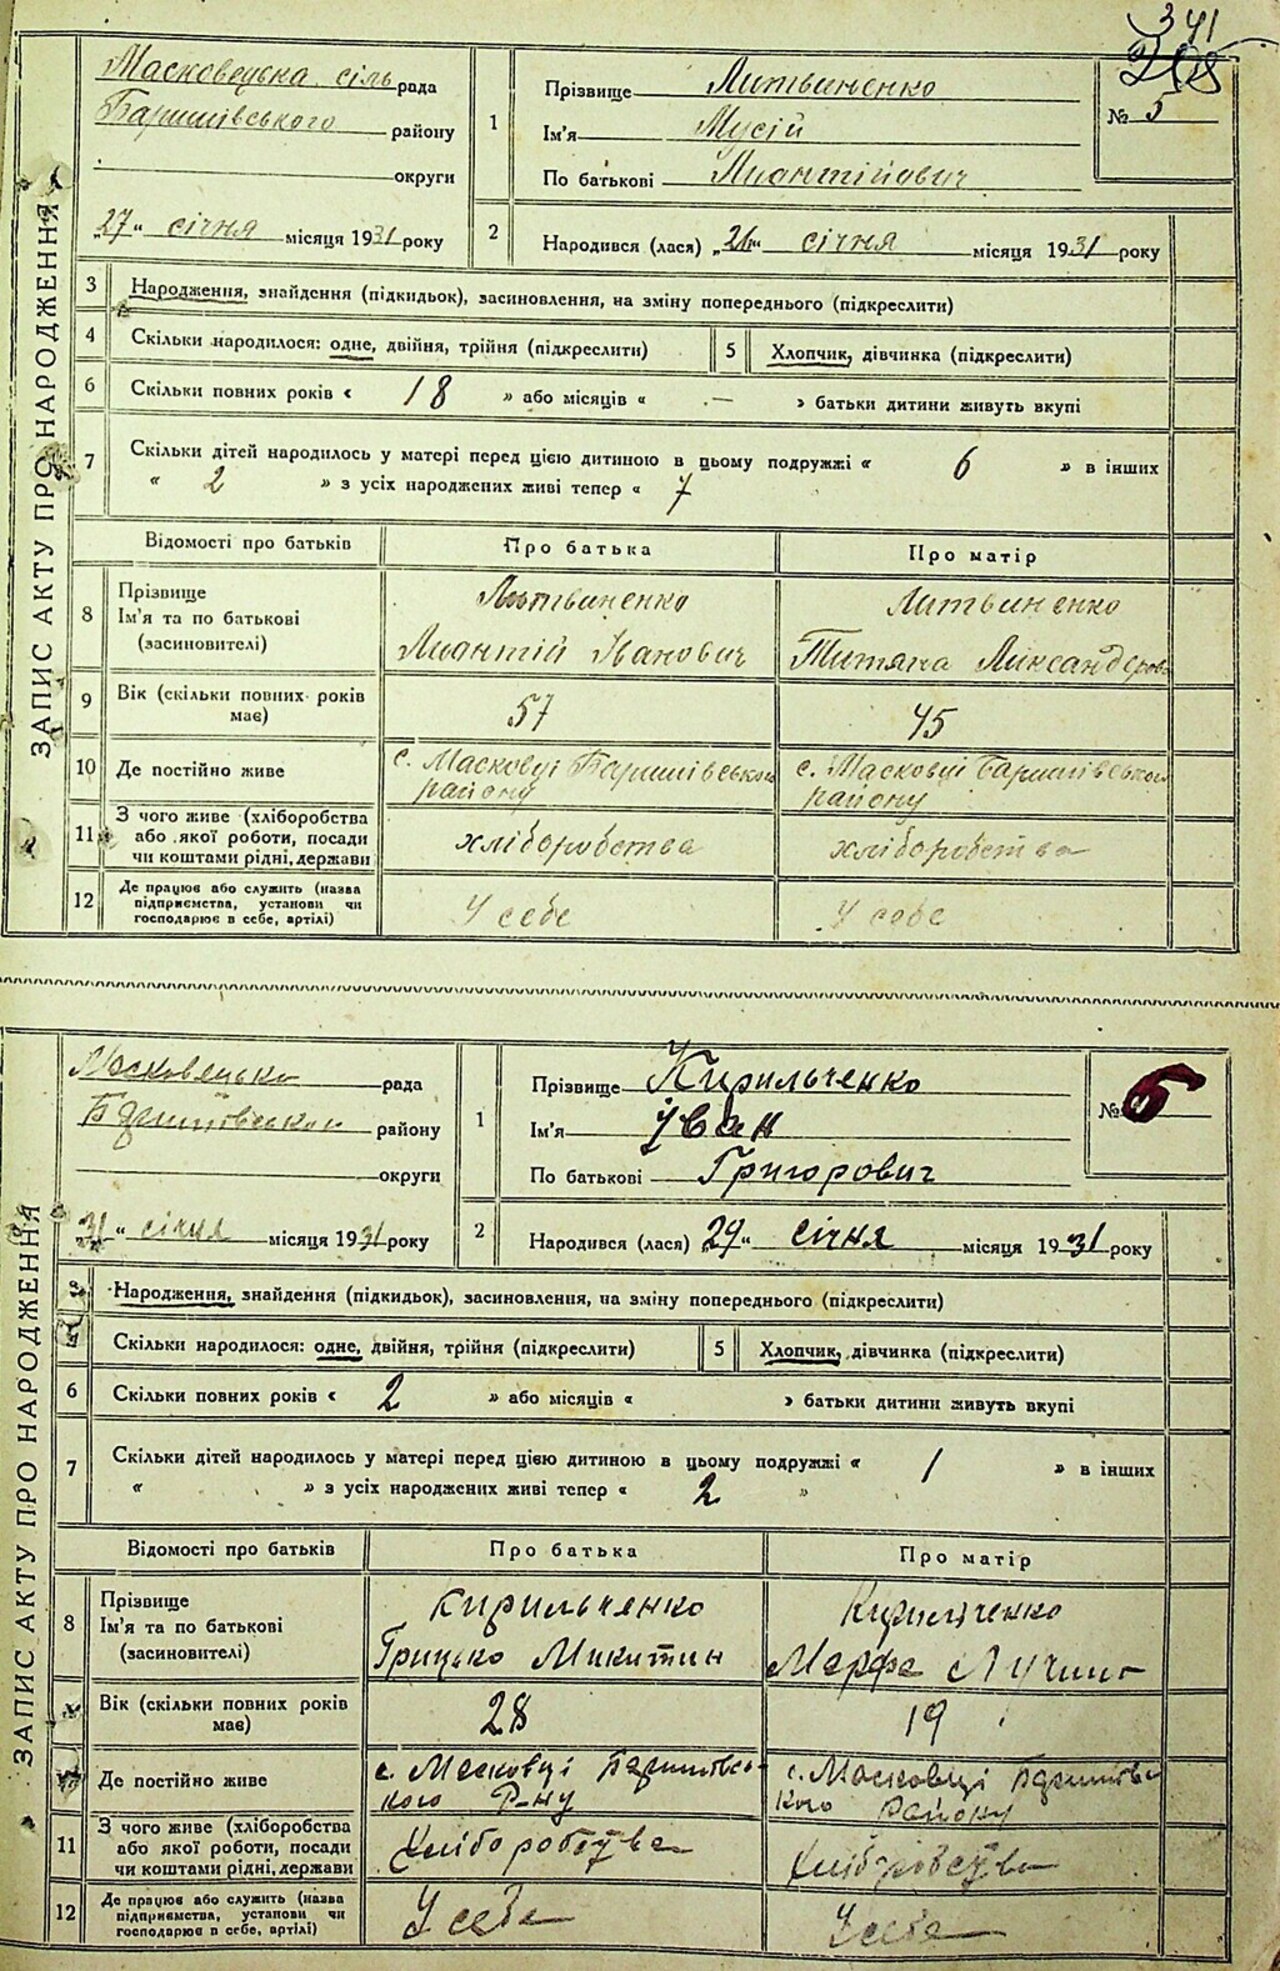 341
ЗАПИС АКТУ ПРО НАРОДЖЕННЯ
Масковецька сіль рада
Баришівського району
округи
„27“ січня місяця 1931 року
1 Прізвище Литвиненко
Ім'я Мусій
По батькові Лионтійович
№ 5
2 Народився (лася) „26“ січня місяця 1931 року
3 Народження, знайдення (підкидьок), засиновлення, на зміну попереднього (підкреслити)
4 Скільки народилося: одне, двійня, трійня (підкреслити) 5 Хлопчик, дівчинка (підкреслити)
6 Скільки повних років « 18 » або місяців « — » батьки дитини живуть вкупі
7 Скільки дітей народилось у матері перед цією дитиною в цьому подружжі « 6 » в інших
« 2 » з усіх народжених живі тепер « 7
Відомості про батьків Про батька Про матір
8 Прізвище Литвиненко Литвиненко
Ім'я та по батькові
(засиновителі) Лионтій Іванович Титяна Ликсандеров
9 Вік (скільки повних років має) 57 45
10 Де постійно живе с. Масковці Баришівського району с. Масковці Баришівського району
11 З чого живе (хліборобства
або якої роботи, посади
чи коштами рідні, держави хліборобства хліборобства
12 Де працює або служить (назва
підприємства, установи чи
господарює в себе, артілі) У себе У себе
ЗАПИС АКТУ ПРО НАРОДЖЕННЯ
Масковецько рада
Баришівськой району
округи
„31“ січня місяця 1931 року
1 Прізвище Кирильченко
Ім'я Іван
По батькові Григорович
№ 6
2 Народився (лася) „29“ січня місяця 1931 року
3 Народження, знайдення (підкидьок), засиновлення, на зміну попереднього (підкреслити)
4 Скільки народилося: одне, двійня, трійня (підкреслити) 5 Хлопчик, дівчинка (підкреслити)
6 Скільки повних років « 2 » або місяців « » батьки дитини живуть вкупі
7 Скільки дітей народилось у матері перед цією дитиною в цьому подружжі « 1 » в інших
« » з усіх народжених живі тепер « 2 »
Відомості про батьків Про батька Про матір
8 Прізвище Кирильченко Кирильченко
Ім'я та по батькові
(засиновителі) Грицько Микитин Марфа
Вік (скільки повних років має) 28 19
Де постійно живе с. Масковці Баришівського р-ну с. Масковці Баришівського району
11 З чого живе (хліборобства
або якої роботи, посади
чи коштами рідні, держави Хліборобства Хліборобства
12 Де працює або служить (назва
підприємства, установи чи
господарює в себе, артілі) У себе У себе